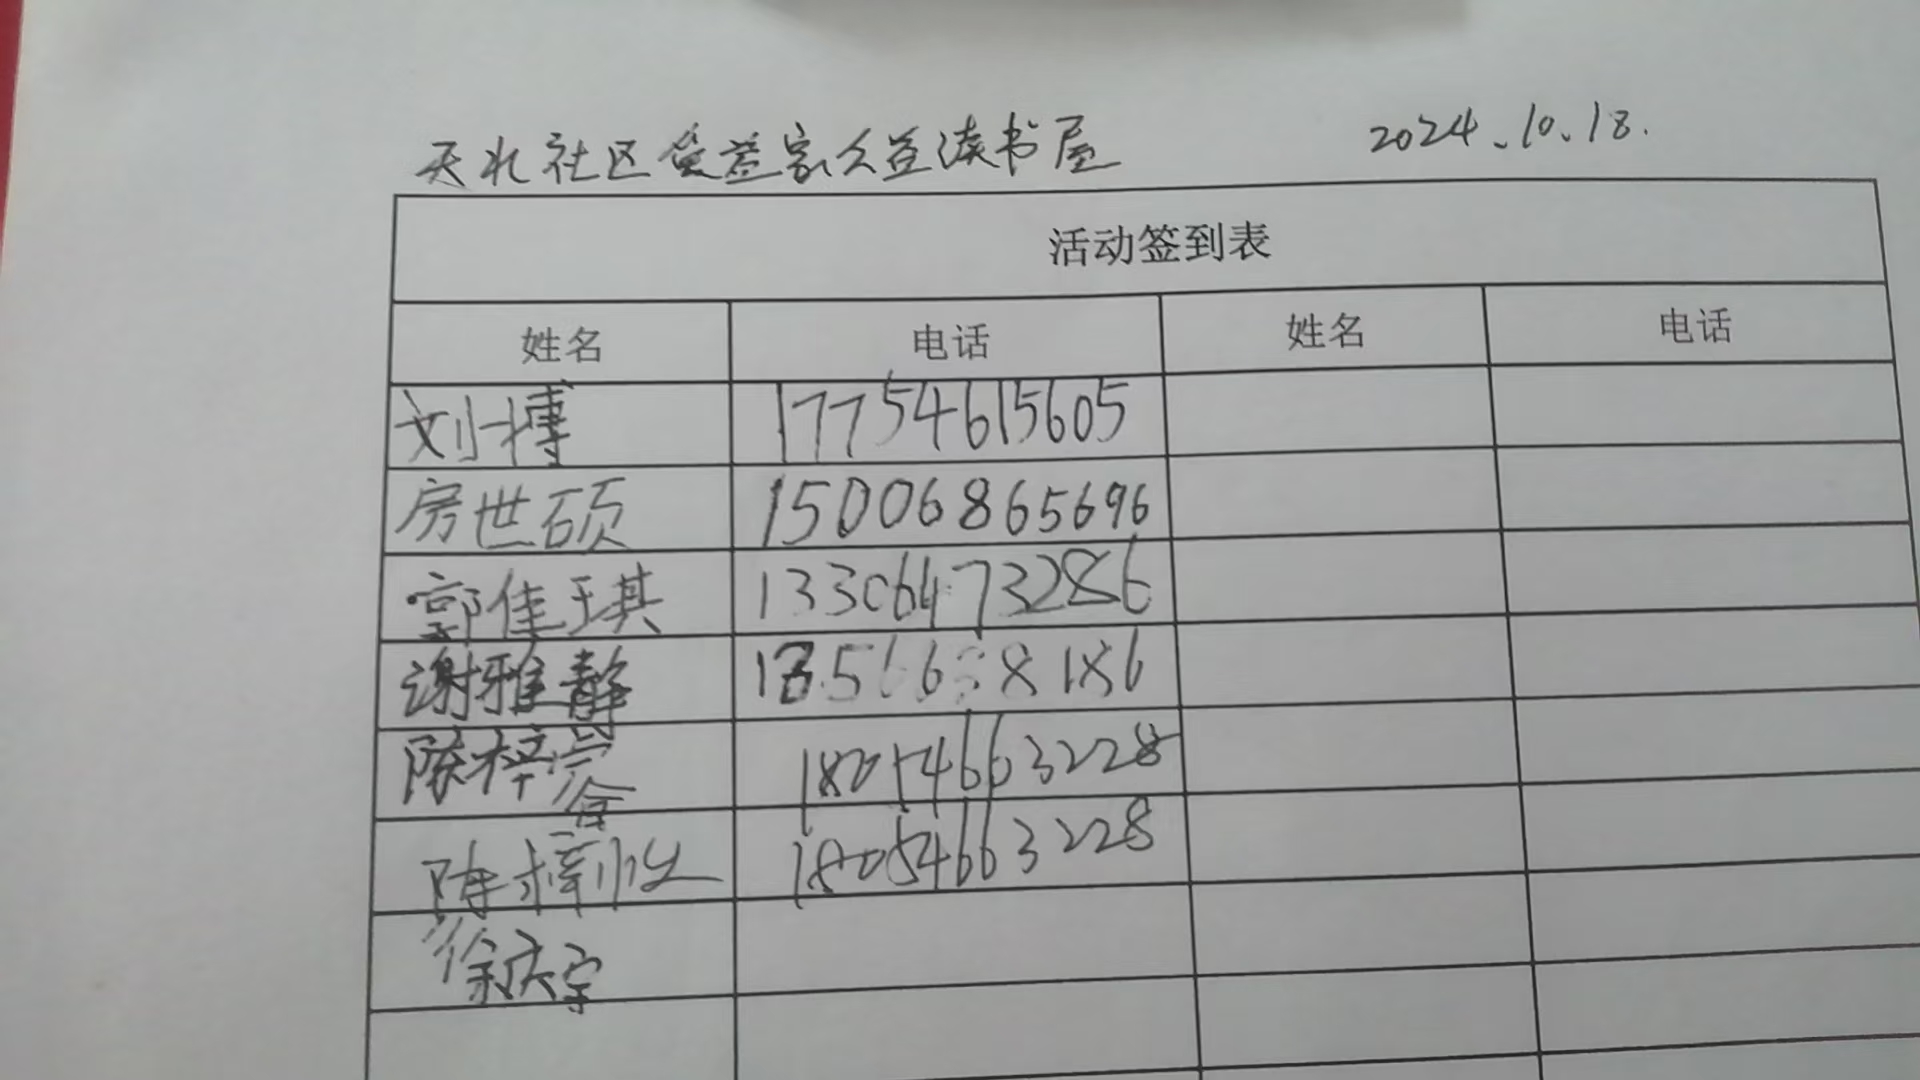 天北社区爱益家公益读书屋 2024.10.18.
活动签到表
姓名 电话 姓名 电话
刘一搏 17754615605
房世硕 15006865696
郭佳琪 13306473286
谢雅静 8186
陈梓容 18054663228
陈梓 18054663228
徐庆宇